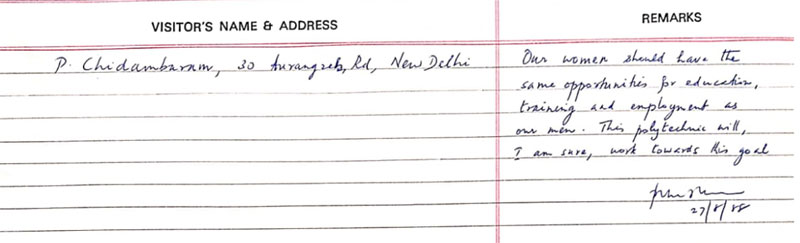 VISITOR'S NAME & ADDRESS
REMARKS
P. Chidambaram, 30 Aurangzeb Rd, New Delhi
Our women should have the
same opportunities for education,
training and employment as
our men. This polytechnic will,
I am sure, work towards this goal
27/8/88